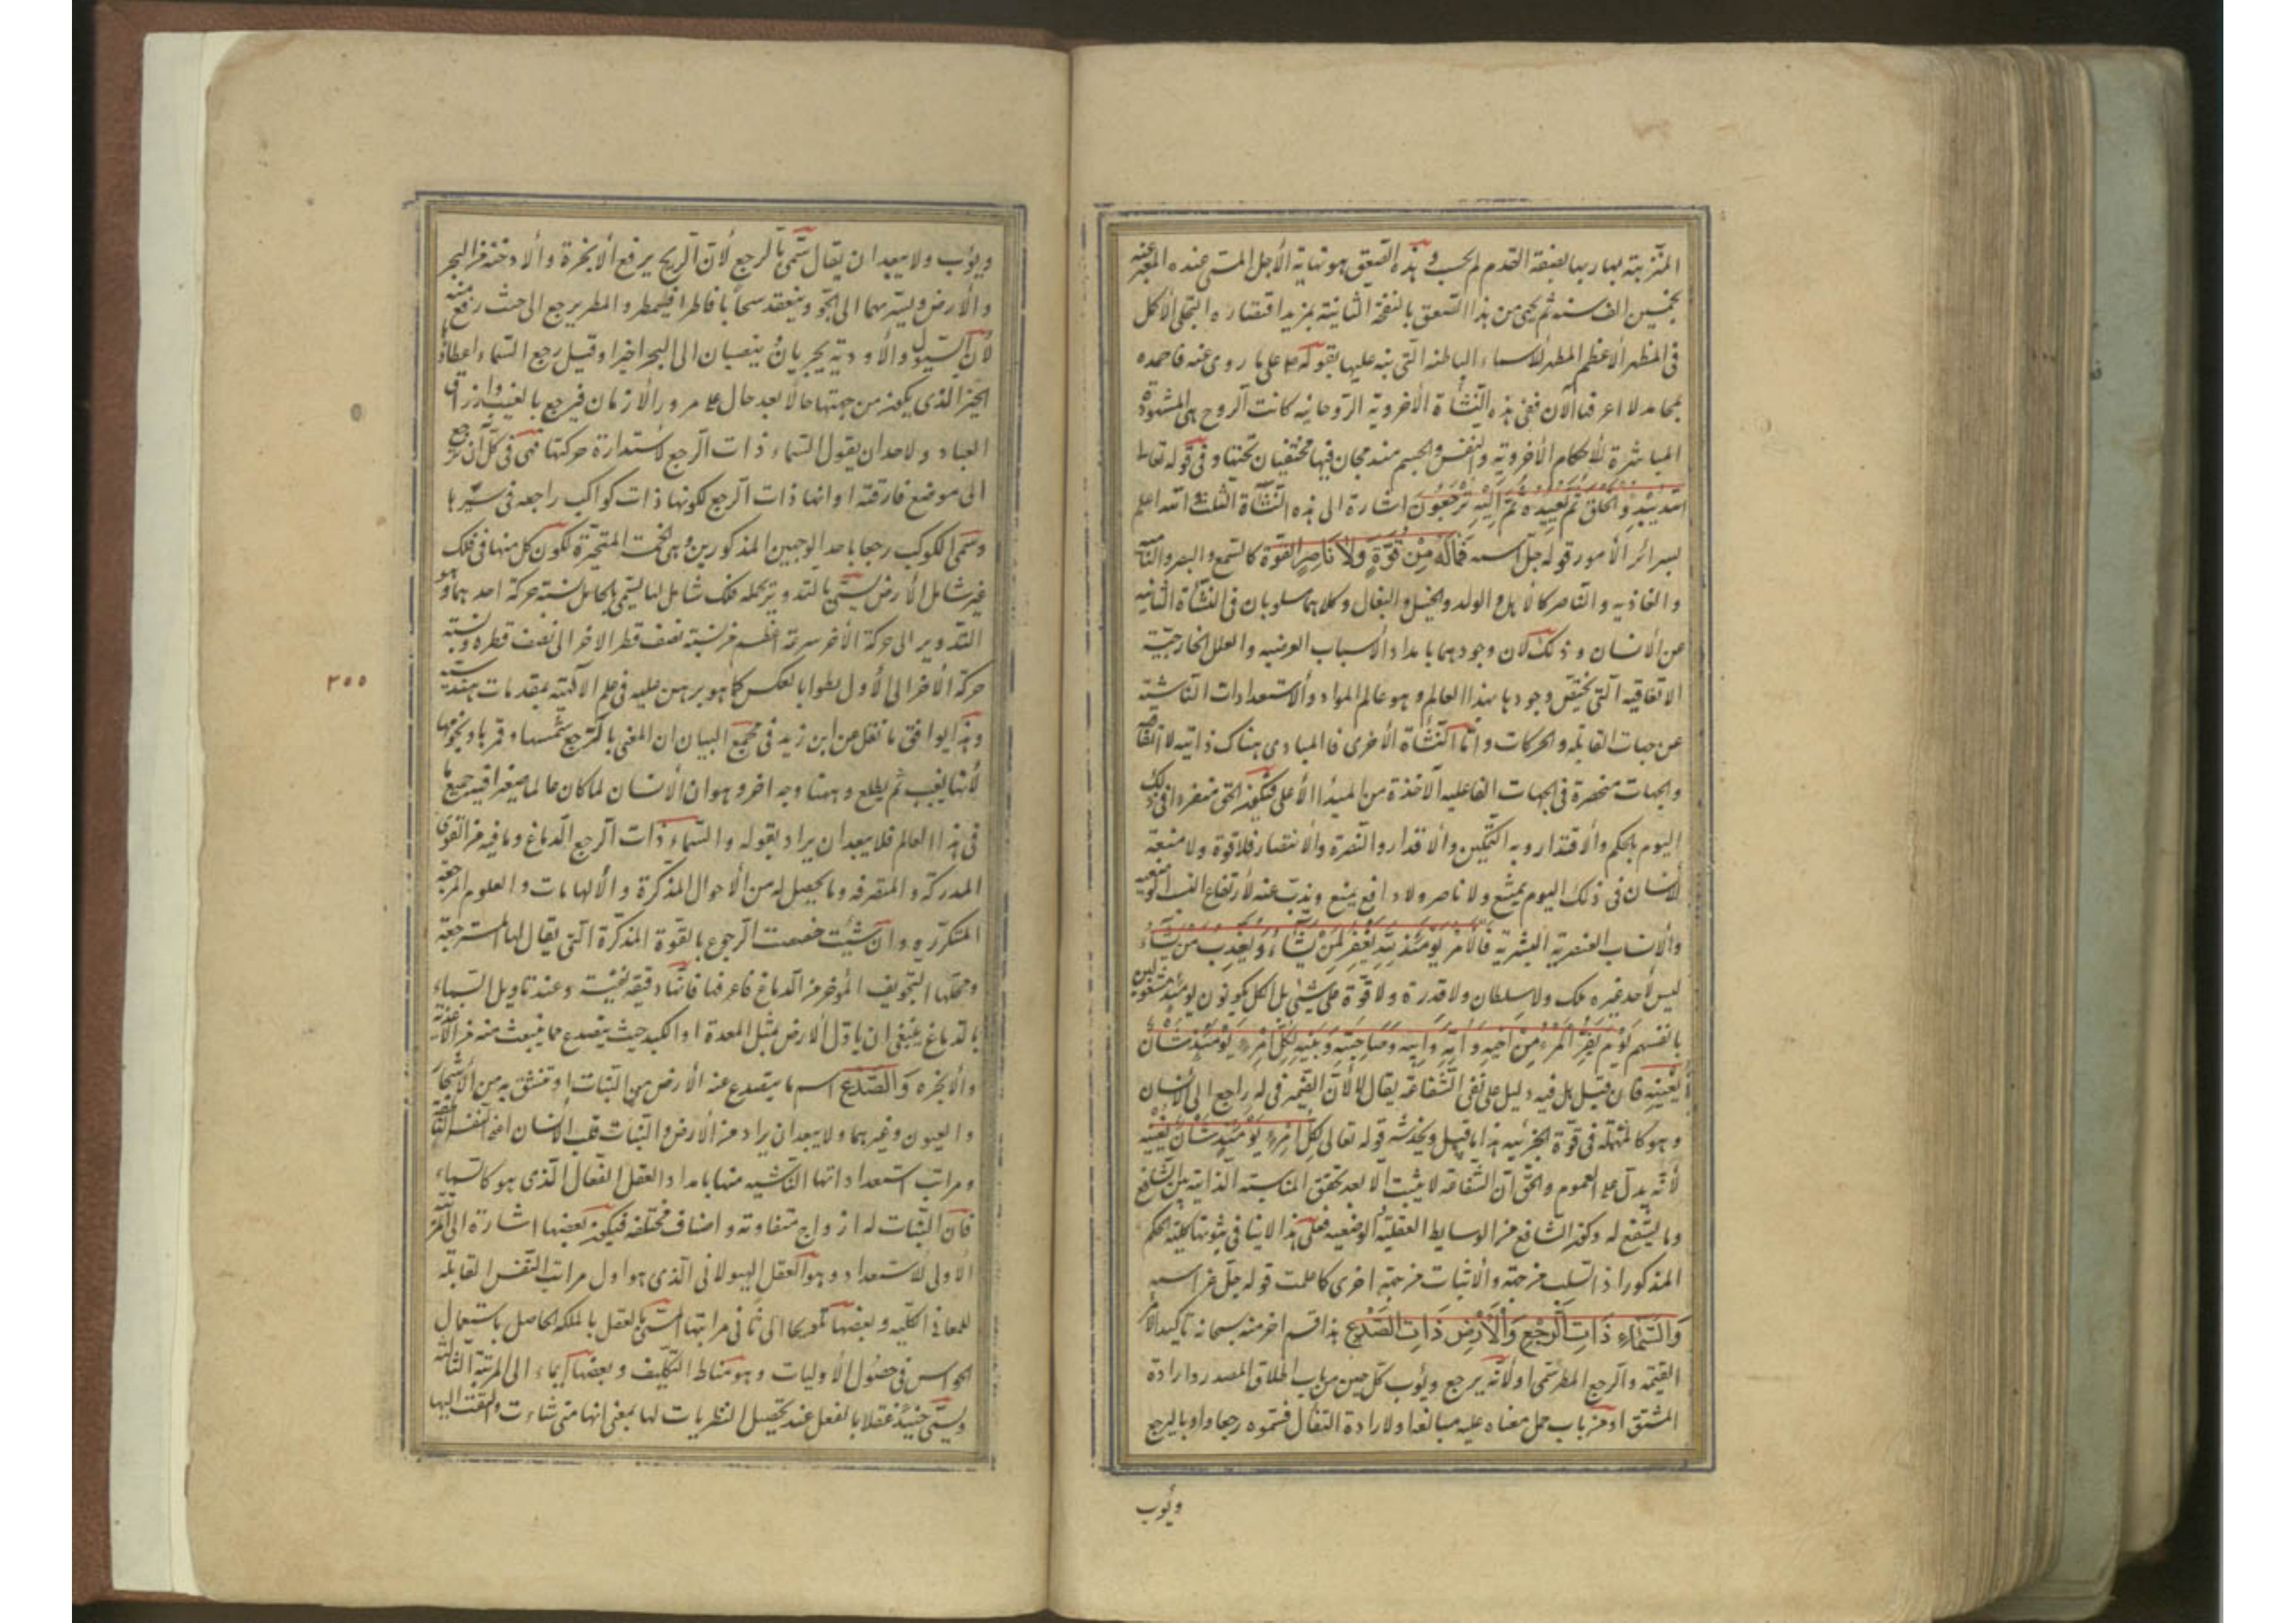 المتزينة بهاربها بصفة القدم لم يحسب و هذه الصعق هو نهاية الأجل المسمى عنده المعبر عنه
بخمسين الف سنه ثم يحيى من هذا الصعق بالنفخة الثانية بمزيد اقتضاره التجلى الأكمل
فى المظهر الأعظم المظهر للأسماء الباطنه التى نبه عليها بقوله ص على ما روى عنه فاحمده
بمحامد لا اعرفها الآن ففى هذه النشأة الأخروية الروحانيه كانت الروح هى المشهودة
المباشرة للأحكام الأخروية والنفس والجسم مندمجان فيها مختفيان تحتها و فى قوله تعالى
الله يبدؤ الخلق ثم يعيده ثم اليه ترجعون اشارة الى هذه النشأة الثلث الله اعلم
بسرائر الأمور قوله جل اسمه فَمَالَهُ مِنْ قُوَّةٍ وَلَا نَاصِرٍ القوة كالسمع والبصر والنامية
والغاذيه والناصر كالأهل والولد والخيل والبغال وكلاهما مسلوبان فى النشأة الثانيه
عن الأنسان و ذلك لأن وجودهما بامداد الأسباب العرضيه والعلل الخارجية
الاتفاقيه التى يختص وجودها بهذا العالم و هو عالم المواد والاستعدادات الناشئة
عن جهات القابله والحركات واما النشأة الأخرى فالمبادى هناك ذاتيه لا اتفاقية
والجهات منحصرة فى الجهات الفاعليه الآخذة من المبدأ الأعلى فيكون الحق منفردا فى ذلك
اليوم بالحكم والاقتدار وبه التمكين والاقدار والنصرة والانتصار فلا قوة ولا منعة
للأنسان فى ذلك اليوم يمتنع ولا ناصر ولا دافع يمنع ويذب عنه لارتفاع النسب
والانساب العنصرية البشرية فالأمر يومئذ لله يغفر لمن يشاء ويعذب من يشاء
ليس لأحد غيره ملك ولا سلطان ولا قدرة ولا قوة على شئ بل الكل يكونون يومئذ مشغولين
بانفسهم يوم يفر المرء من اخيه و امه و ابيه وصاحبته و بنيه لكل امرء يومئذ شان
يغنيه فان قيل هل فيه دليل على نفى الشفاعة يقال لا لأن الضمير فى له راجع الى الأنسان
و هو كالمهملة فى قوة الجزئيه هذا ما قيل ويخدشه قوله تعالى لكل امرء يومئذ شان يغنيه
لأنه يدل على العموم والحق ان الشفاعة لا يثبت الا بعد تحقق المناسبة الذاتية بين الشافع
وما يشفع له وكون الشافع من الوسايط العقلية الوضعيه فعلى هذا لا ينافى ثبوتها كلية الحكم
المذكور اذ السلب من جهة والأثبات من جهة اخرى كما علمت قوله جل من اسمه
وَالسَّمَاءِ ذَاتِ الرَّجْعِ وَالْأَرْضِ ذَاتِ الصَّدْعِ هذا قسم اخر منه سبحانه تأكيدا لأمر
القيمه والرجع المطر سمى اولا لأنه يرجع ويؤب كل حين من باب اطلاق المصدر وارادة
المشتق او من باب حمل معناه عليه مبالغة او لارادة التفأل فسموه رجعا واوبا ليرجع
ويؤب
ويؤب ولا يبعد ان يقال سمى بالرجع لأن الريح يرفع الأبخرة والأدخنة من البحر
والأرض ويسير بهما الى الجو وينعقد سحابا قاطرا فيمطر والمطر يرجع الى حيث رفع منه
لأن السيول والأودية يجريان ينصبان الى البحر اخيرا وقيل رجع السماء اعطاؤها
الخير الذى يكون من جهتها حالا بعد حال على مرور الأزمان فيرجع بالغيث وارزاق
العباد ولاحد ان يقول السماء ذات الرجع لاستدارة حركتها فهى فى كل آن ترجع
الى موضع فارقته او انها ذات الرجع لكونها ذات كواكب راجعه فى سيرها
وسمى الكوكب رجعا باحد الوجهين المذكورين وهى الخمسة المتحيرة لكون كل منها فى فلك
غير شامل للأرض يسمى بالتدوير يحمله فلك شامل لها يسمى بالحامل نسبة حركة احدهما و هو
التدوير الى حركة الأخر سرعة اعظم من نسبة نصف قطر الاخر الى نصف قطره ونسبة
حركة الأخر الى الأول بطوا بالعكس كما هو برهن عليه فى علم الأكتيه بمقدمات هندسية
وهذا يوافق ما نقل عن ابن زيد فى مجمع البيان ان المعنى بالرجع شمسها وقمرها ونجومها
لأنها يغيب ثم يطلع و ههنا وجه اخر و هو ان الأنسان لما كان عالما صغيرا فيه جميع ما
فى هذا العالم فلا يبعد ان يراد بقوله والسماء ذات الرجع الدماغ وما فيه من القوى
المدركة والمتصرفه وما يحصل له من الأحوال المذكرة والألهامات والعلوم المرجعة
المتكرره وان شئت خصصت الرجوع بالقوة المذكرة التى يقال لها المسترجعة
ومحلها التجويف المؤخر من الدماغ فاعرفها فانها دقيقة نفيسة وعند تاويل السماء
بالدماغ ينبغى ان ياول الارض بمثل المعدة او الكبد حيث يتصدع مما ينبعث منه من الأغذية
والأبخره وَالصَّدْعِ اسم ما يتصدع عنه الأرض من النبات او تنشق به من الأشجار
والعيون وغيرهما ولا يبعد ان يراد من الأرض والنبات قلب الأنسان اعنى النفس الناطقة
ومراتب استعداداتها الناشيه منها بامداد العقل الفعال الذى هو كالسماء
فان النبات له ازواج متفاوته واصناف مختلفه فيكون بعضها اشارة الى المرتبة
الأولى للأستعداد و هو العقل الهيولانى الذى هو اول مراتب النفس القابلة
للمعانى الكليه و بعضها تلويحا الى ثانى مراتبها المسمى بالعقل بالملكه الحاصل باستعمال
الحواس فى حصول الأوليات و هو مناط التكليف و بعضها ايماء الى المرتبة الثالثة
ويسمى حينئذ عقلا بالفعل عند تحصيل النظريات لها بمعنى انها متى شاءت والتفتت اليها
٢٥٥